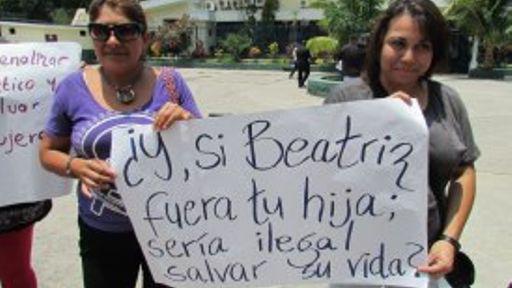 enalizar
tico y
lvar
ujere
¿Y, si Beatriz
fuera tu hija;
sería ilegal
salvar su vida?